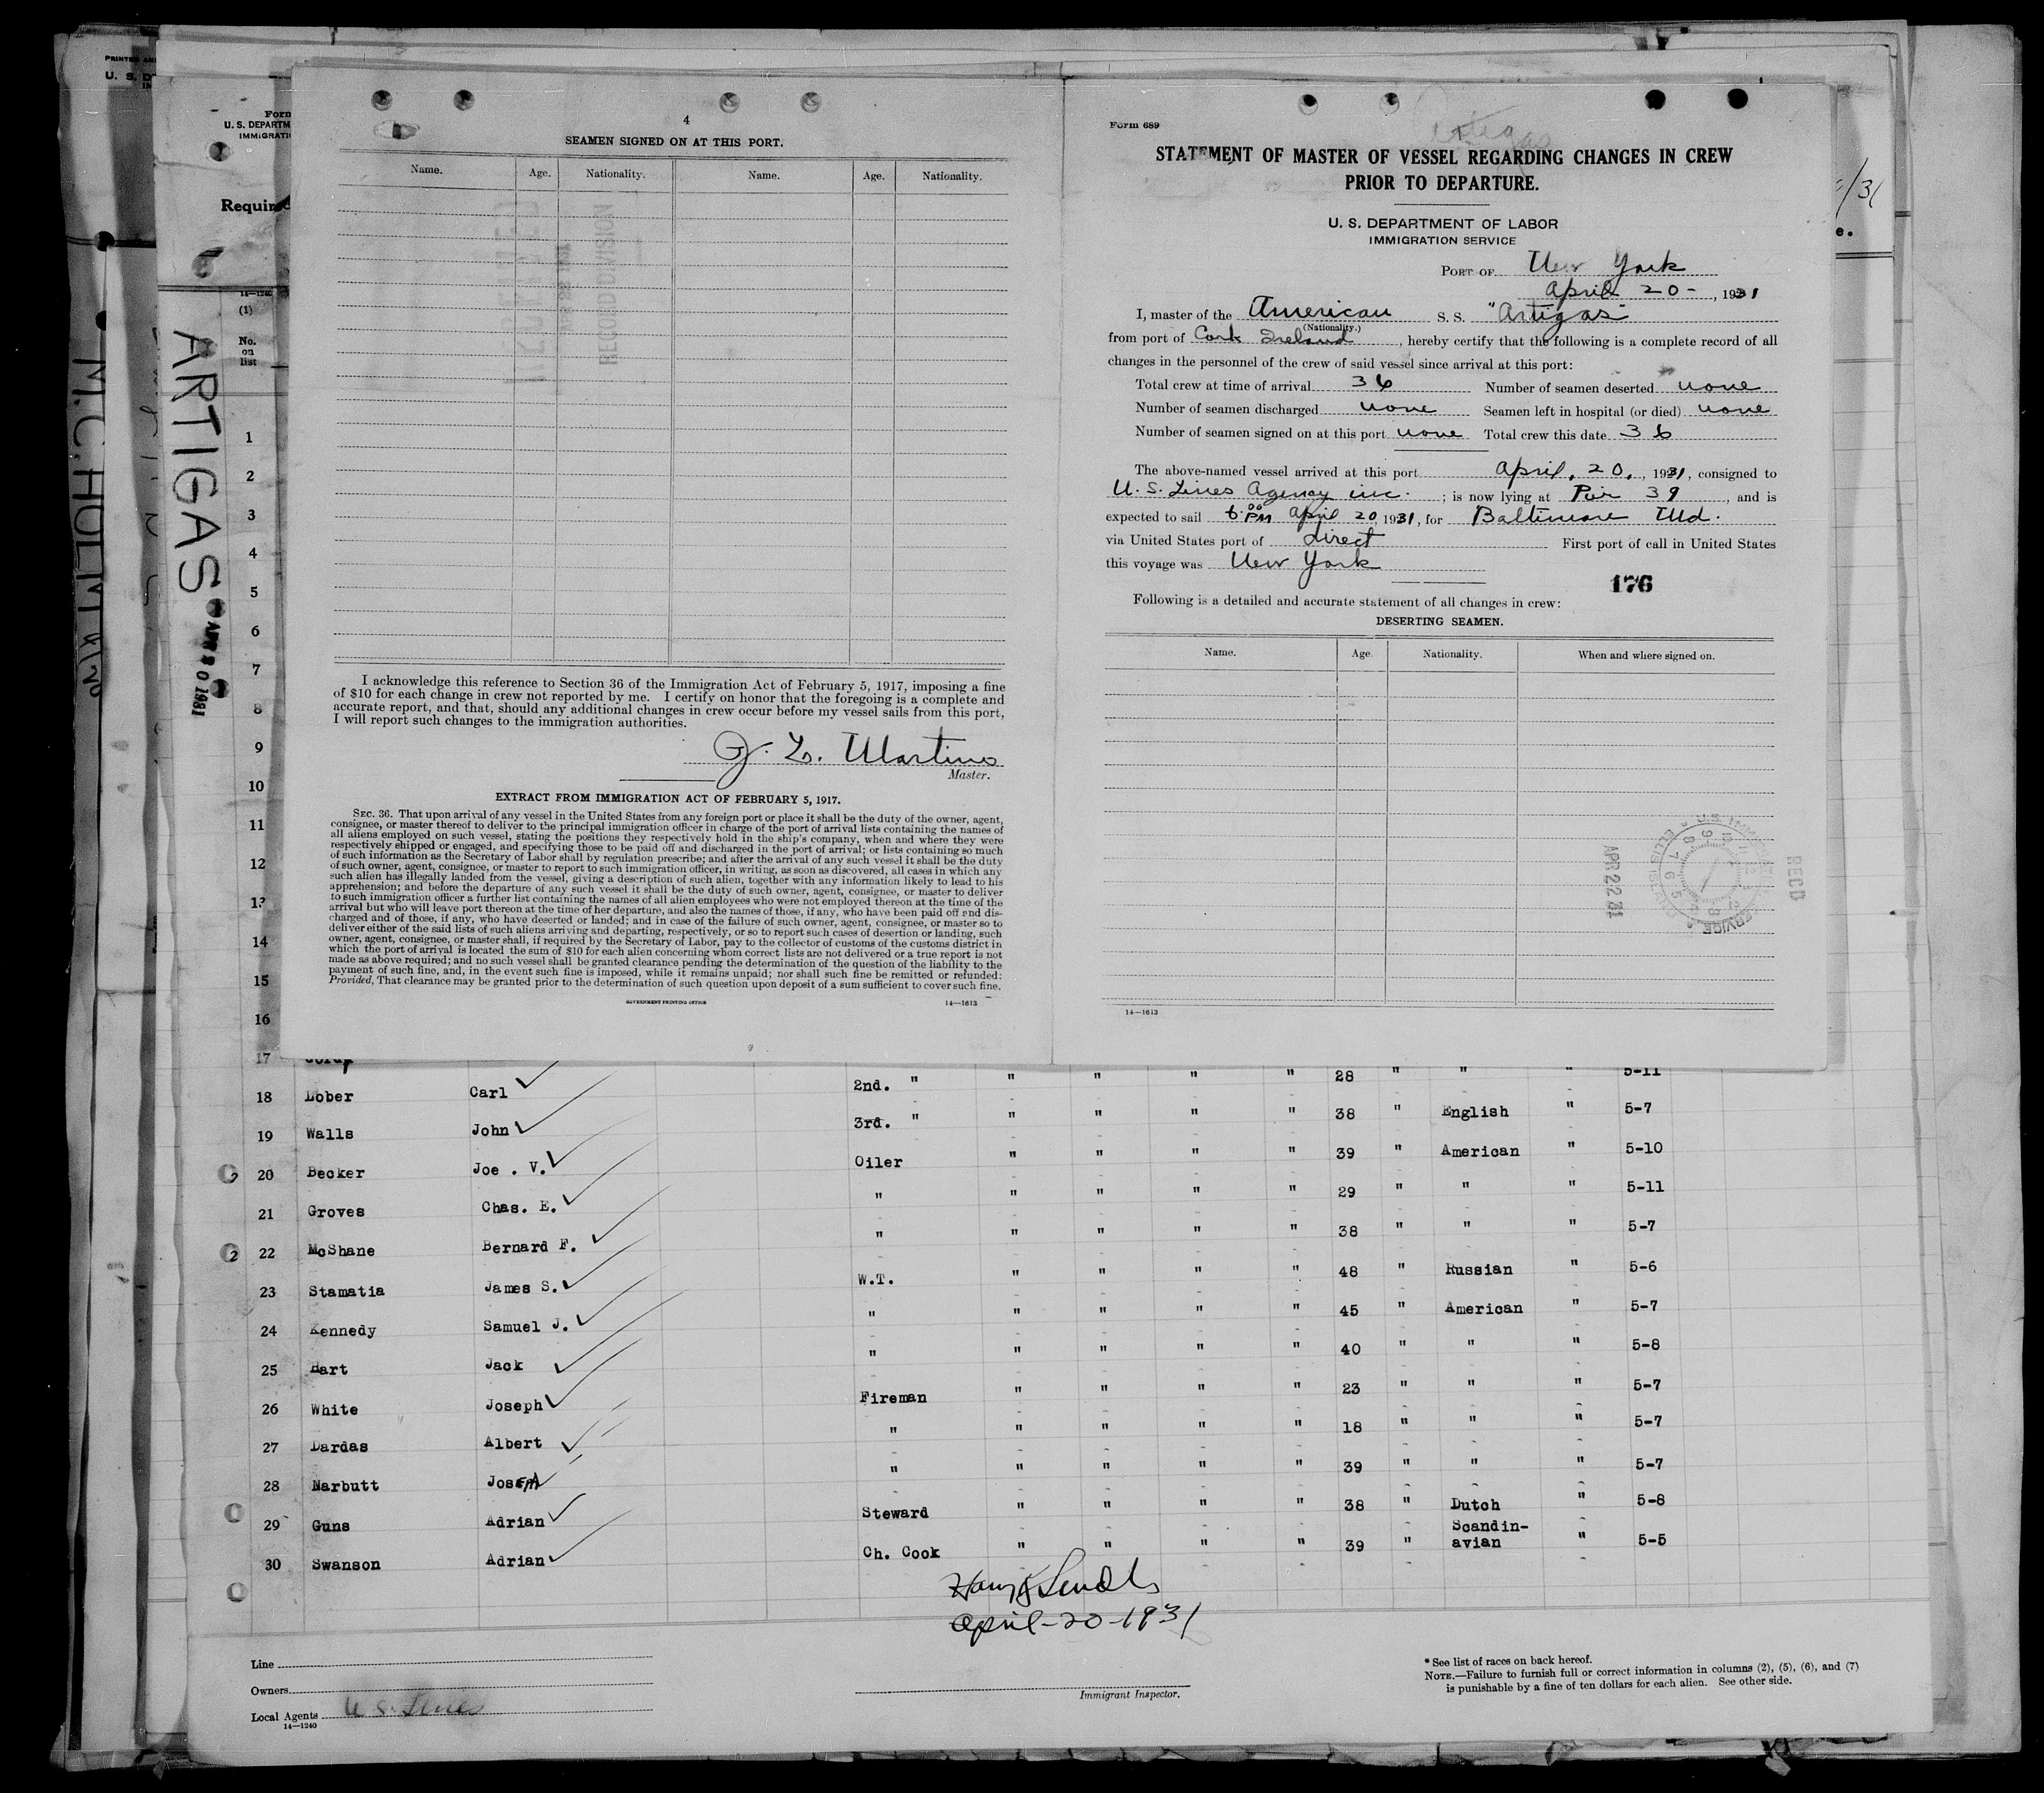 4
SEAMEN SIGNED ON AT THIS PORT.
Name. Age. Nationality. Name. Age. Nationality.
RECORD DIVISION
I acknowledge this reference to Section 36 of the Immigration Act of February 5, 1917, imposing a fine
of $10 for each change in crew not reported by me. I certify on honor that the foregoing is a complete and
accurate report, and that, should any additional changes in crew occur before my vessel sails from this port,
I will report such changes to the immigration authorities.
Master.
EXTRACT FROM IMMIGRATION ACT OF FEBRUARY 5, 1917.
SEC. 36. That upon arrival of any vessel in the United States from any foreign port or place it shall be the duty of the owner, agent,
consignee, or master thereof to deliver to the principal immigration officer in charge of the port of arrival lists containing the names of
all aliens employed on such vessel, stating the positions they respectively hold in the ship's company, when and where they were
respectively shipped or engaged, and specifying those to be paid off and discharged in the port of arrival; or lists containing so much
of such information as the Secretary of Labor shall by regulation prescribe; and after the arrival of any such vessel it shall be the duty
of such owner, agent, consignee, or master to report to such immigration officer, in writing, as soon as discovered, all cases in which any
such alien has illegally landed from the vessel, giving a description of such alien, together with any information likely to lead to his
apprehension; and before the departure of any such vessel it shall be the duty of such owner, agent, consignee, or master to deliver
to such immigration officer a further list containing the names of all alien employees who were not employed thereon at the time of the
arrival but who will leave port thereon at the time of her departure, and also the names of those, if any, who have been paid off and dis-
charged and of those, if any, who have deserted or landed; and in case of the failure of such owner, agent, consignee, or master so to
deliver either of the said lists of such aliens arriving and departing, respectively, or so to report such cases of desertion or landing, such
owner, agent, consignee, or master shall, if required by the Secretary of Labor, pay to the collector of customs of the customs district in
which the port of arrival is located the sum of $10 for each alien concerning whom correct lists are not delivered or a true report is not
made as above required; and no such vessel shall be granted clearance pending the determination of the question of the liability to the
payment of such fine, and, in the event such fine is imposed, while it remains unpaid; nor shall such fine be remitted or refunded:
Provided, That clearance may be granted prior to the determination of such question upon deposit of a sum sufficient to cover such fine.
GOVERNMENT PRINTING OFFICE 14—1613
Form 689
Artigas
STATEMENT OF MASTER OF VESSEL REGARDING CHANGES IN CREW
PRIOR TO DEPARTURE.
U. S. DEPARTMENT OF LABOR
IMMIGRATION SERVICE
PORT OF New York
April 20 - , 1931
I, master of the American S. S. "Artigas"
(Nationality.)
from port of Cork Ireland , hereby certify that the following is a complete record of all
changes in the personnel of the crew of said vessel since arrival at this port:
Total crew at time of arrival 36 Number of seamen deserted none
Number of seamen discharged none Seamen left in hospital (or died) none
Number of seamen signed on at this port none Total crew this date 36
The above-named vessel arrived at this port April, 20, , 1931, consigned to
U. S. Lines Agency inc. ; is now lying at Pier 39 , and is
expected to sail 6.00 PM April 20, 1931, for Baltimore Md.
via United States port of direct First port of call in United States
this voyage was New York
176
Following is a detailed and accurate statement of all changes in crew:
DESERTING SEAMEN.
Name. Age. Nationality. When and where signed on.
RECD
APR 22 31
14—1613
PRINTED
U. S. D
Form
U. S. DEPARTM
IMMIGRATI
Require
14—1240
(1)
No.
on
list
ARTIGAS
APR 20 1931
M.C. HOLM
/31
e.
1
2
3
4
5
6
7
8
9
10
11
12
13
14
15
16
17
5-11
18 Lober Carl 2nd. " " " " " 28 " " "
19 Walls John 3rd. " " " " " 38 " English " 5-7
20 Becker Joe . V. Oiler " " " " 39 " American " 5-10
21 Groves Chas. E. " " " " " 29 " " " 5-11
22 McShane Bernard F. " " " " " 38 " " " 5-7
23 Stamatia James S. W.T. " " " " 48 " Russian " 5-6
24 Kennedy Samuel J. " " " " " 45 " American " 5-7
25 Hart Jack " " " " " 40 " " " 5-8
26 White Joseph Fireman " " " " 23 " " " 5-7
27 Dardas Albert " " " " " 18 " " " 5-7
28 Narbutt Joseph " " " " " 39 " " " 5-7
29 Guns Adrian Steward " " " " 38 " Dutch " 5-8
30 Swanson Adrian Ch. Cook " " " " 39 " Scandin-
avian " 5-5
April-20-1931
Line
Owners
Local Agents U. S. Lines
14—1240
Immigrant Inspector.
* See list of races on back hereof.
NOTE.—Failure to furnish full or correct information in columns (2), (5), (6), and (7)
is punishable by a fine of ten dollars for each alien. See other side.